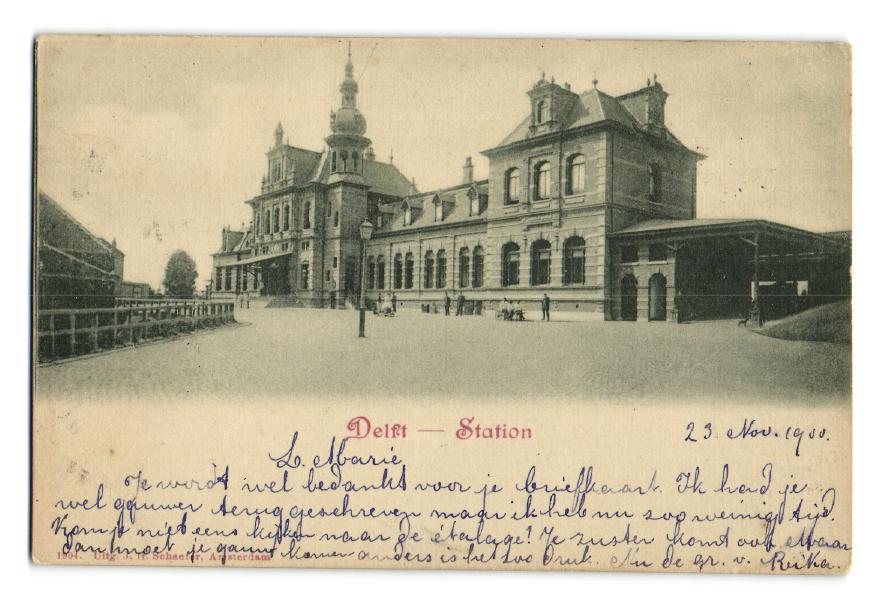 Delft — Station
23 Nov. 1900.
L. Marie
Je wordt wel bedankt voor je briefkaart. Ik had je
wel gauwer terug geschreven maar ik heb nu zoo weinig tijd.
Kom je niet eens kijken naar de étalage? Je zuster komt ook. Maar
dan moet je gauw komen anders is het zoo druk. Nu de gr. v. Rika.
1904. Uitg. J. H. Schaefer, Amsterdam